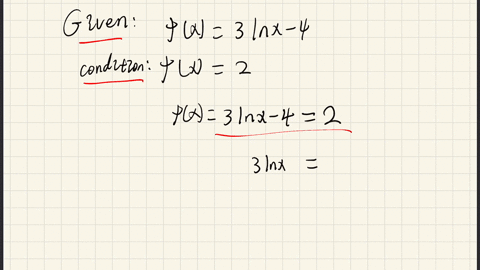 Given: f(x) = 3 ln x - 4
condition: f(x) = 2
f(x) = 3 ln x - 4 = 2
3 ln x =